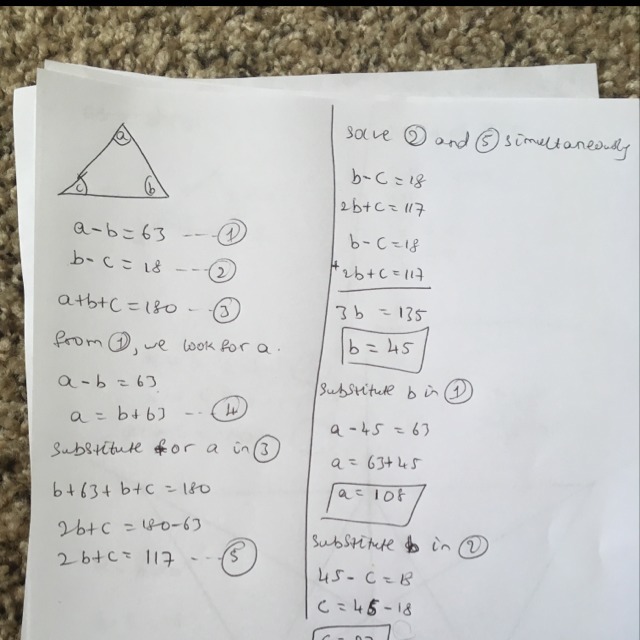 a
c b
a-b=63 ---- ①
b-c=18 ---- ②
a+b+c=180 -- ③
from ①, we look for a.
a-b=63
a=b+63 -- ④
substitute for a in ③
b+63+b+c=180
2b+c=180-63
2b+c=117 ---- ⑤
solve ② and ⑤ simultaneously
b-c=18
2b+c=117
b-c=18
+2b+c=117
3b=135
b=45
substitute b in ①
a-45=63
a=63+45
a=108
substitute b in ②
45-c=18
c=45-18